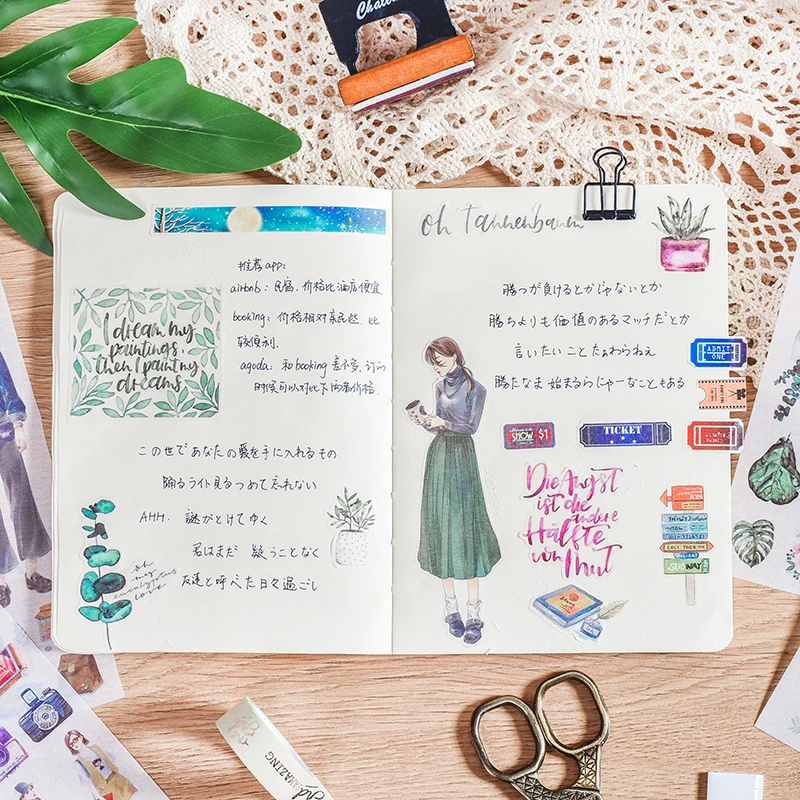 Chalet
推荐app:
airbnb: 民宿,价格比酒店便宜.
booking: 价格相对亲民些. 比
较便利.
agoda: 和booking 差不多, 订的
时候可以对比下 价格.
I dream my
paintings,
then I paint my
dreams
この世であなたの愛を手に入れるもの
踊るライト見つめて忘れない
AHH. 謎がとけてゆく
君はまだ 疑うことなく
友達と呼べた日々過ごし
oh
my
eucalyptus
love
oh Tannenbaum
勝つが負けるとかじゃないとか
勝ちよりも価値のあるマッチだとか
言いたいこと
勝たなま 始まるらにゃーなこともある
ADMIT
ONE
SHOW $1
TICKET
Die Angst
ist die
andere
Hälfte
von Mut
ATM
EASY PARKING
HOLIDAY
SUBWAY
AMAZING